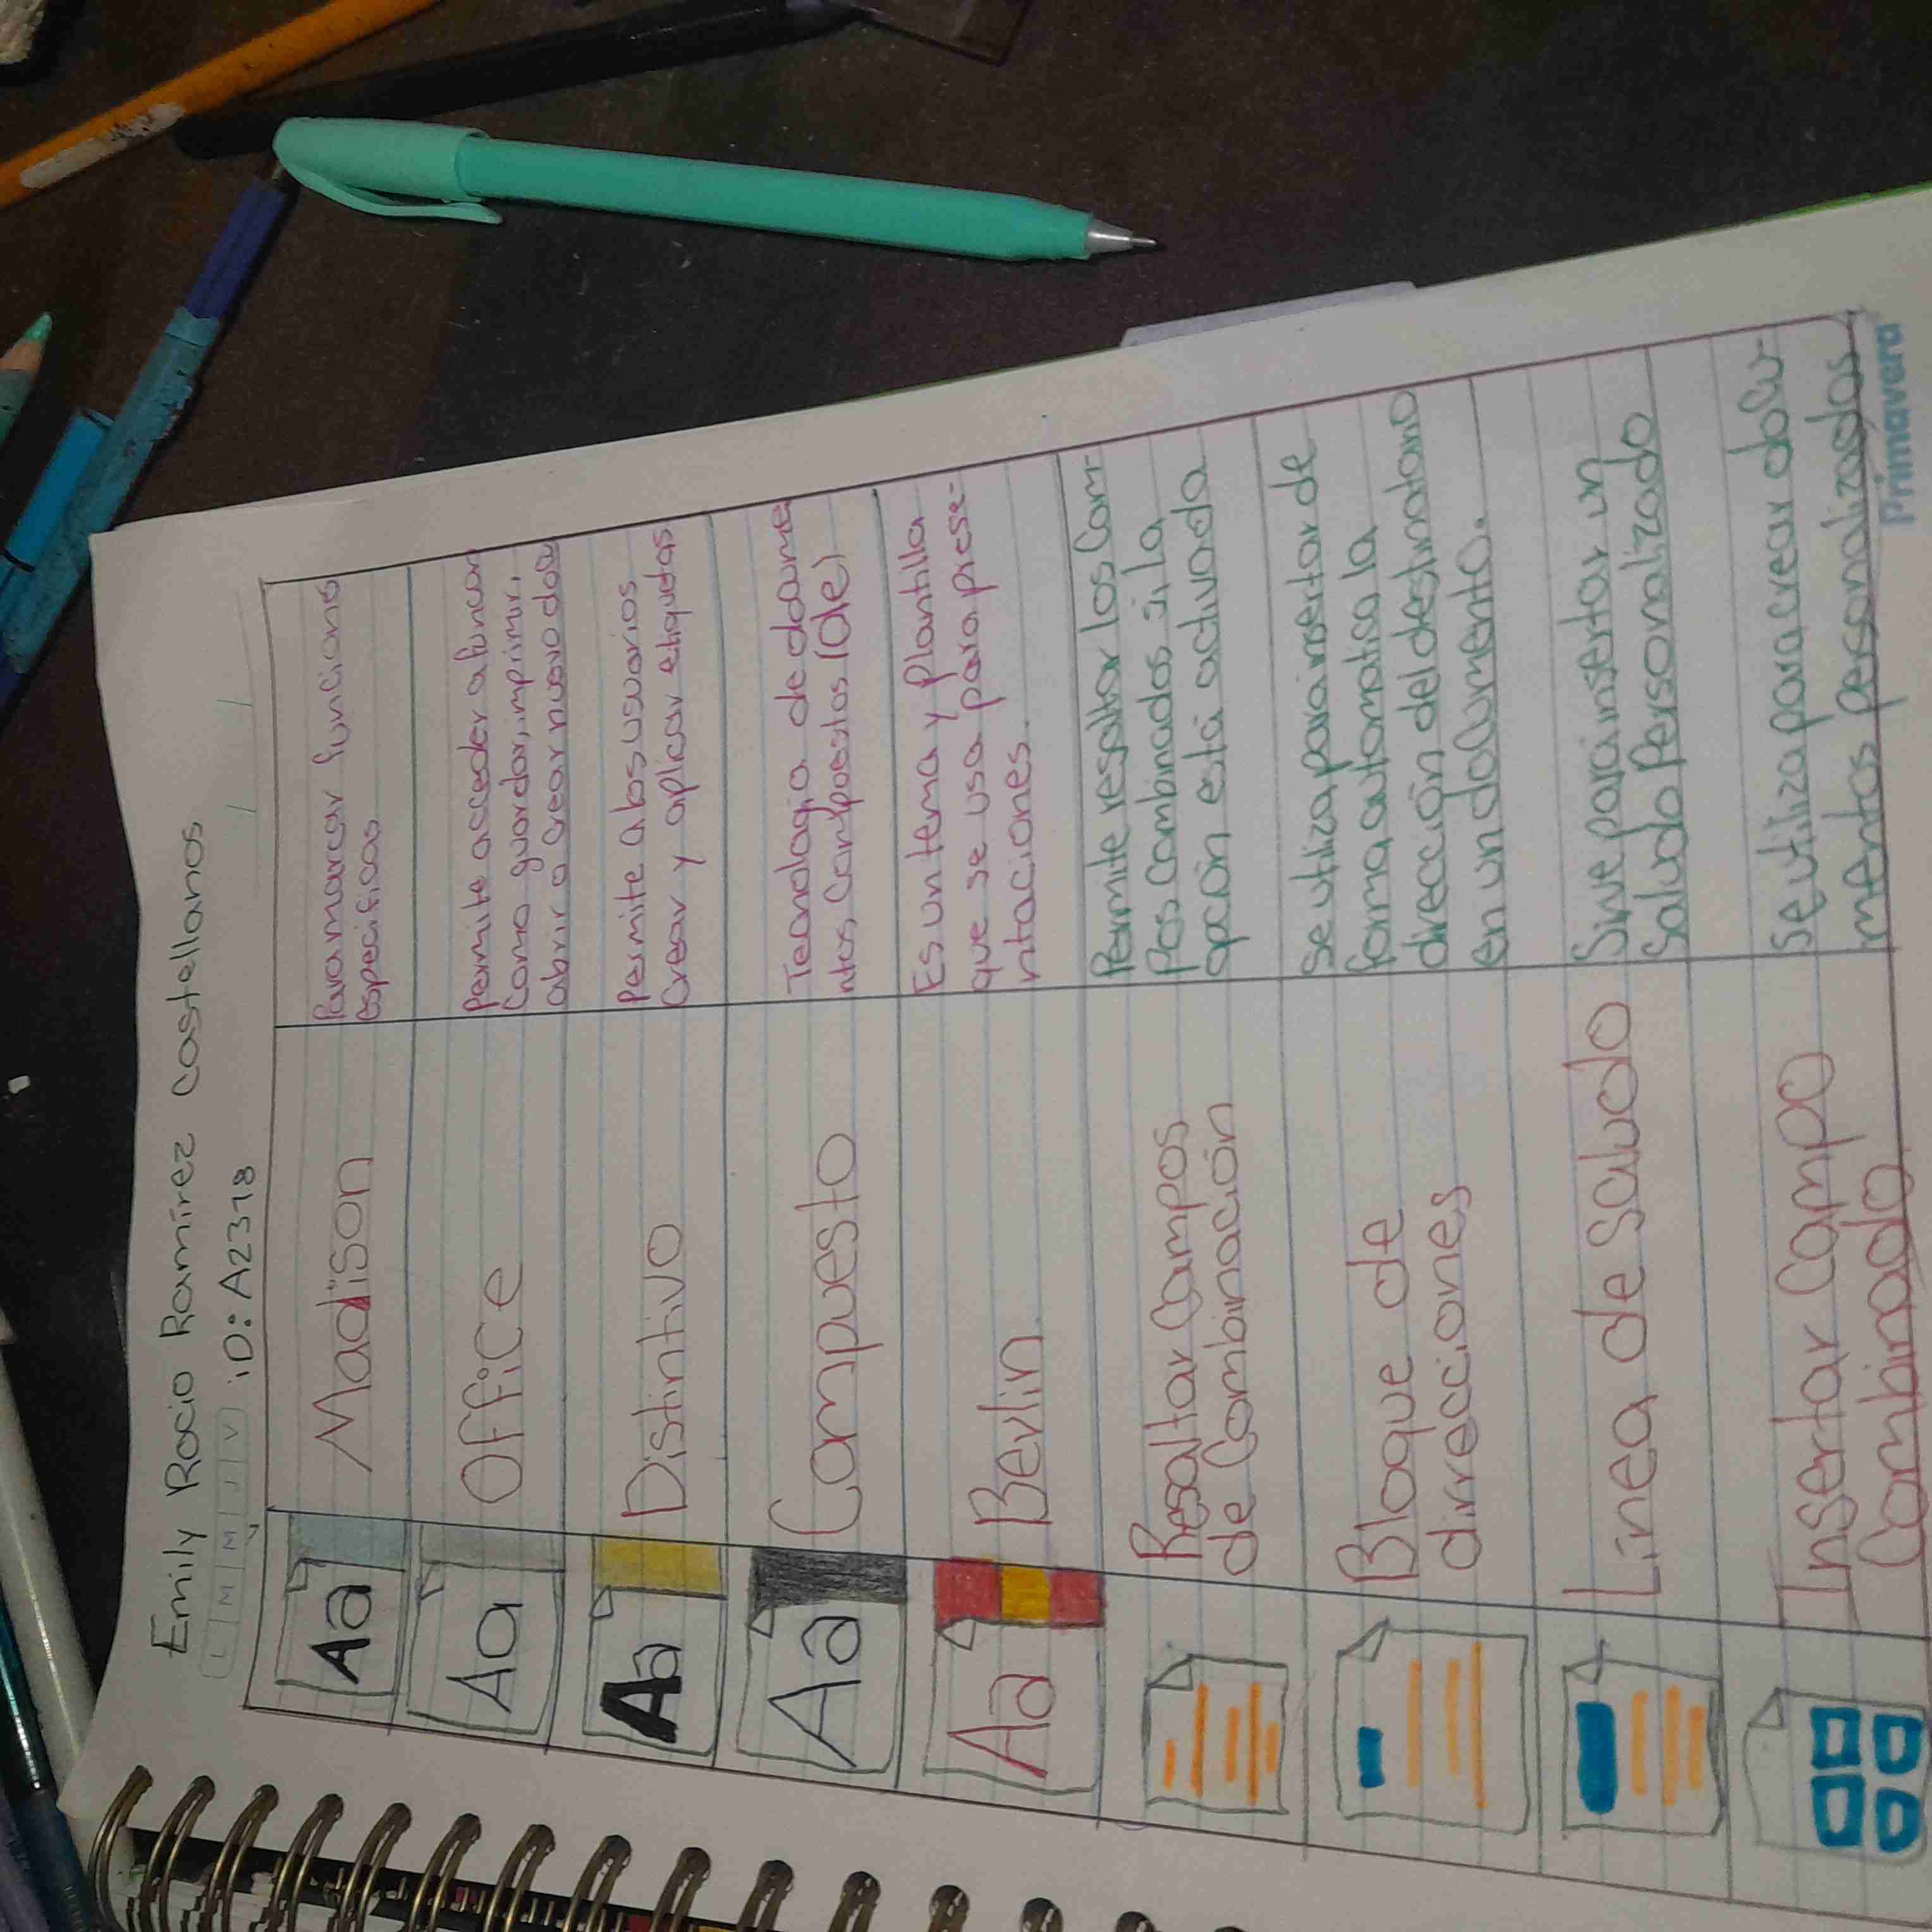 Emily Rocio Ramírez Castellanos
L M M J V iD: A2318
Aa Madison Para marcar funciones
especificas
Aa Office Permite acceder a funcion
Como guardar, imprimir,
abrir o crear nuevo doc
Aa Distintivo Permite a los usuarios
Crear y aplicar etiquetas
Aa Compuesto Tecnologia de docume
ntos, Compuestos (Ole)
Aa Berlin Es un tema y plantilla
que se usa para prese-
ntaciones.
Resaltar Campos
de Combinación
Permite resaltar los Cam-
pos Combinados si la
opción está activada
Bloque de
direcciones
Se utiliza para insertar de
forma automatica la
dirección del destinatario
en un documento.
Linea de Saludo
Sirve para insertar un
Saludo Personalizado
Insertar Campo
Combinado
Se utiliza para crear docu-
mentos personalizados
Primavera